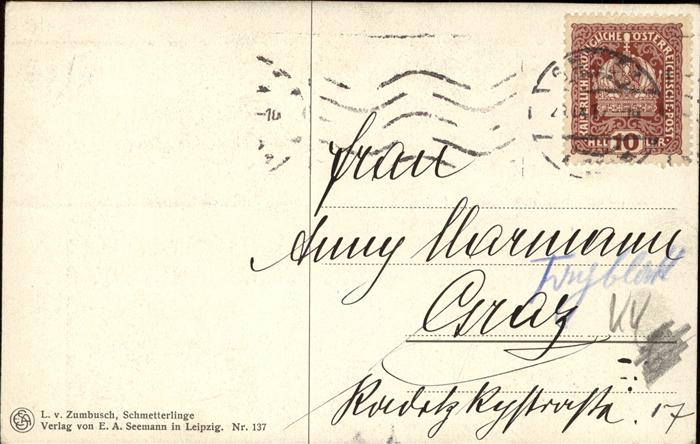 KAISERLICH KÖNIGLICHE ÖSTERREICHISCHE POST
10
Frau
Anny Marmann
Graz
Radetzkystraße. 17
L. v. Zumbusch, Schmetterlinge
Verlag von E. A. Seemann in Leipzig. Nr. 137